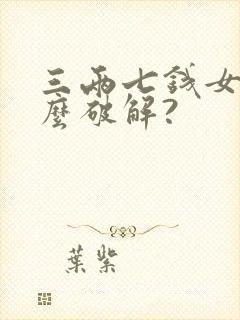 三兩七錢女
麼破解?
葉紫